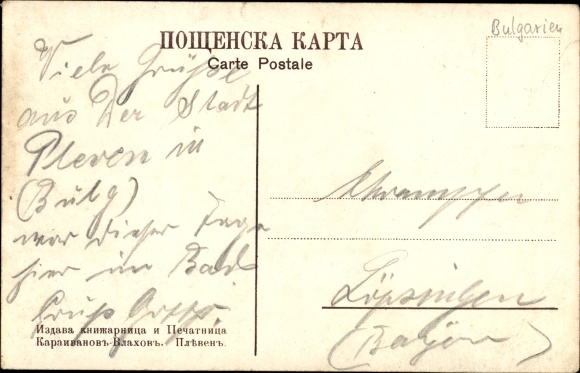 Bulgarien
ПОЩЕНСКА КАРТА
Carte Postale
Viele Grüße
aus der Stadt
Pleven in
(Bulg)
war dieser Tage
hier im Bad
Gruß
Löpsingen
(Bayern)
Издава книжарница и Печатница
Караивановъ-Влаховъ. Плѣвенъ.